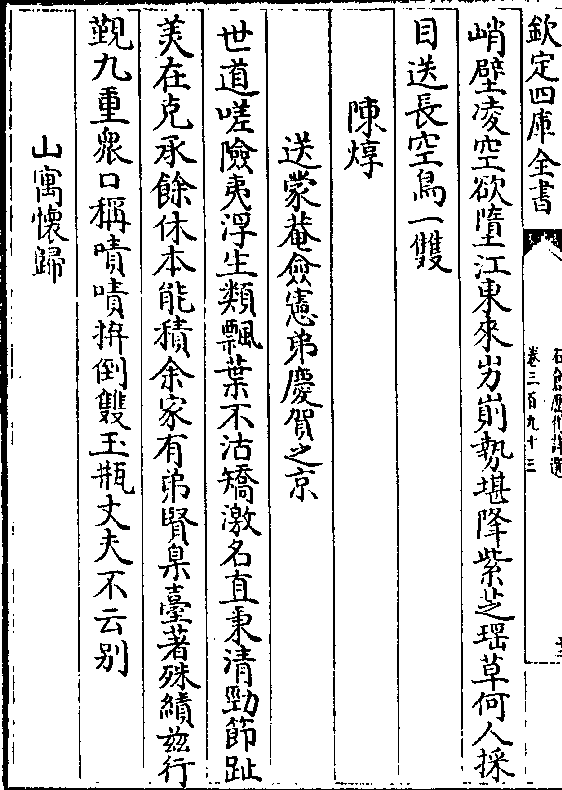 欽定四庫全書
石倉歷代詩選
卷三百九十三
峭壁凌空欲墮江東來岃崱勢堪降紫芝瑶草何人採
目送長空鳥一雙
陳焞
送蒙菴僉憲弟慶賀之京
世道嗟險夷浮生類飄葉不沽矯激名直秉清勁節趾
美在克承餘休本能積余家有弟賢臬臺著殊績兹行
覲九重衆口稱嘖嘖拚倒雙玉瓶丈夫不云别
山寓懷歸